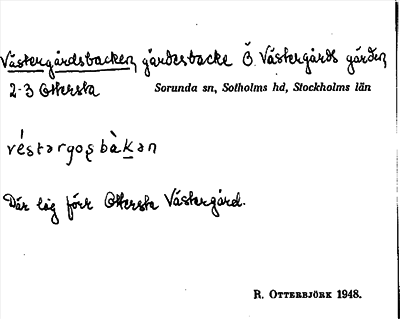 Västergårdsbacken, gärdesbacke Ö. Västergårds gärden,
2-3 Ottersta Sorunda sn, Sotholms hd, Stockholms län
véstərgoʂbàkən
Där låg förr Ottersta Västergård.
R. Otterbjörk 1948.